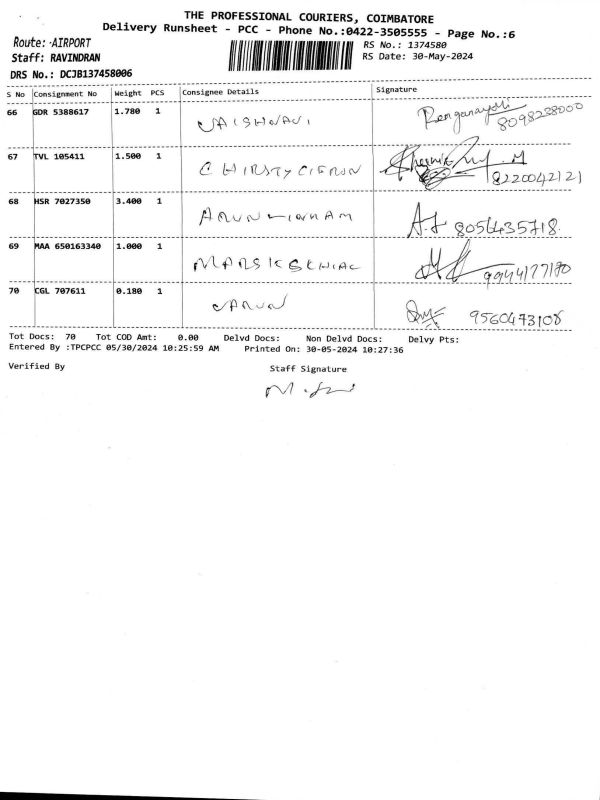 THE PROFESSIONAL COURIERS, COIMBATORE
Delivery Runsheet - PCC - Phone No.:0422-3505555 - Page No.:6
Route: AIRPORT RS No.: 1374580
Staff: RAVINDRAN RS Date: 30-May-2024
DRS No.: DCJB137458006
S No Consignment No Weight PCS Consignee Details Signature
66 GDR 5388617 1.780 1 VAISHNAVI Renganayaki 8098238000
67 TVL 105411 1.500 1 8220042121
68 HSR 7027350 3.400 1 8056435718
69 MAA 650163340 1.000 1 9944177180
70 CGL 707611 0.180 1 VARUN 9560473108
Tot Docs: 70 Tot COD Amt: 0.00 Delvd Docs: Non Delvd Docs: Delvy Pts:
Entered By :TPCPCC 05/30/2024 10:25:59 AM Printed On: 30-05-2024 10:27:36
Verified By Staff Signature